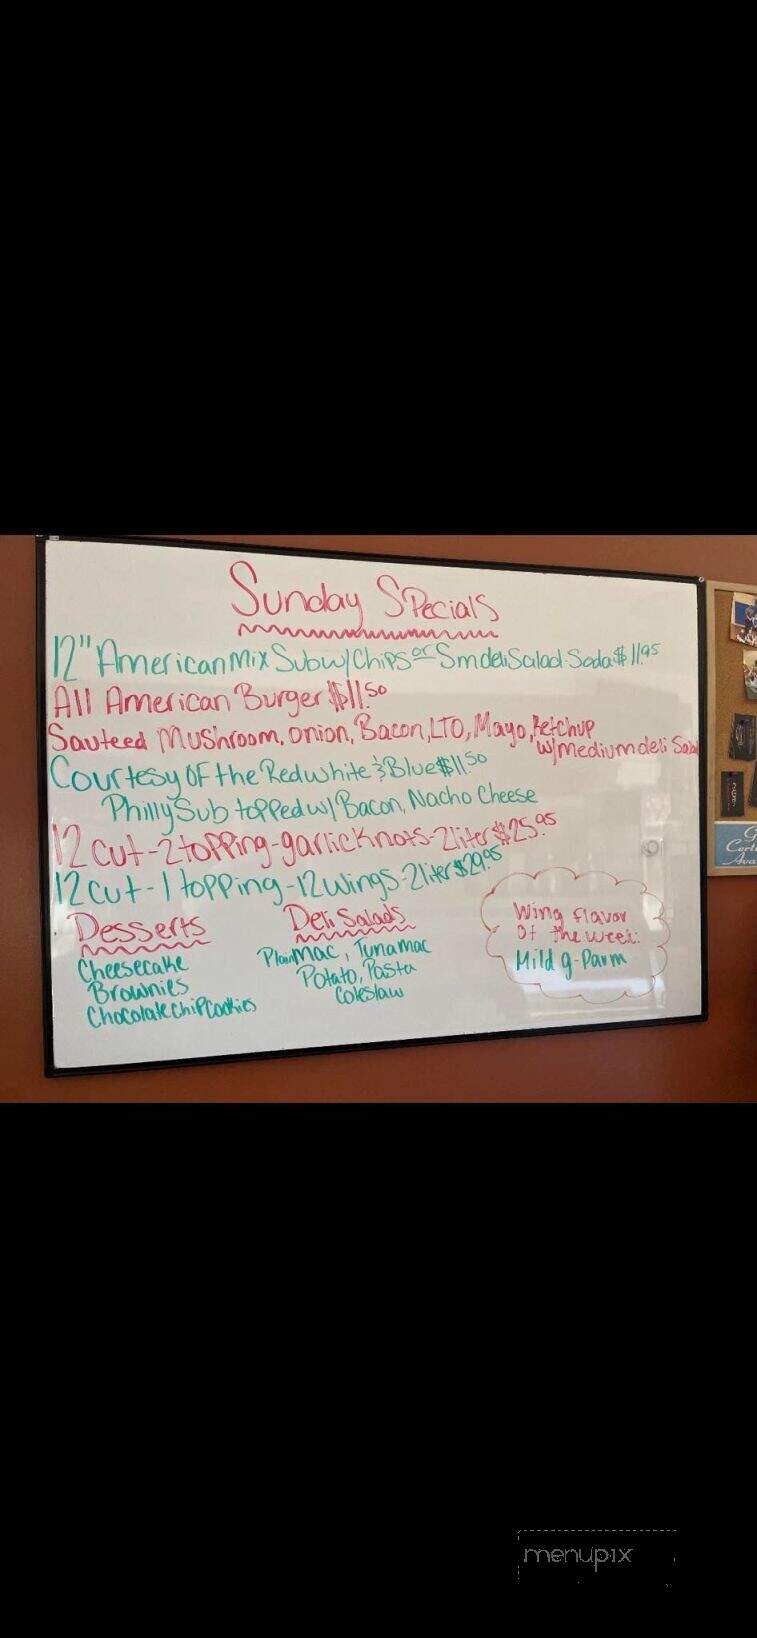 Sunday Specials
12" American Mix Sub w/ Chips or Sm deli Salad. Soda $11.95
All American Burger $11.50
Sauteed Mushroom, onion, Bacon, LTO, Mayo, Ketchup
w/ medium deli Salad
Courtesy OF the Red white & Blue $11.50
Philly Sub topped w/ Bacon, Nacho Cheese
12 cut - 2 topping - garlic knots - 2 liter $25.95
12 cut - 1 topping - 12 wings - 2 liter $29.95
Desserts
Cheesecake
Brownies
Chocolate Chip Cookies
Deli Salads
Plain Mac, Tuna mac
Potato, Pasta
Coleslaw
Wing flavor
of the week:
Mild g-Parm
menupix